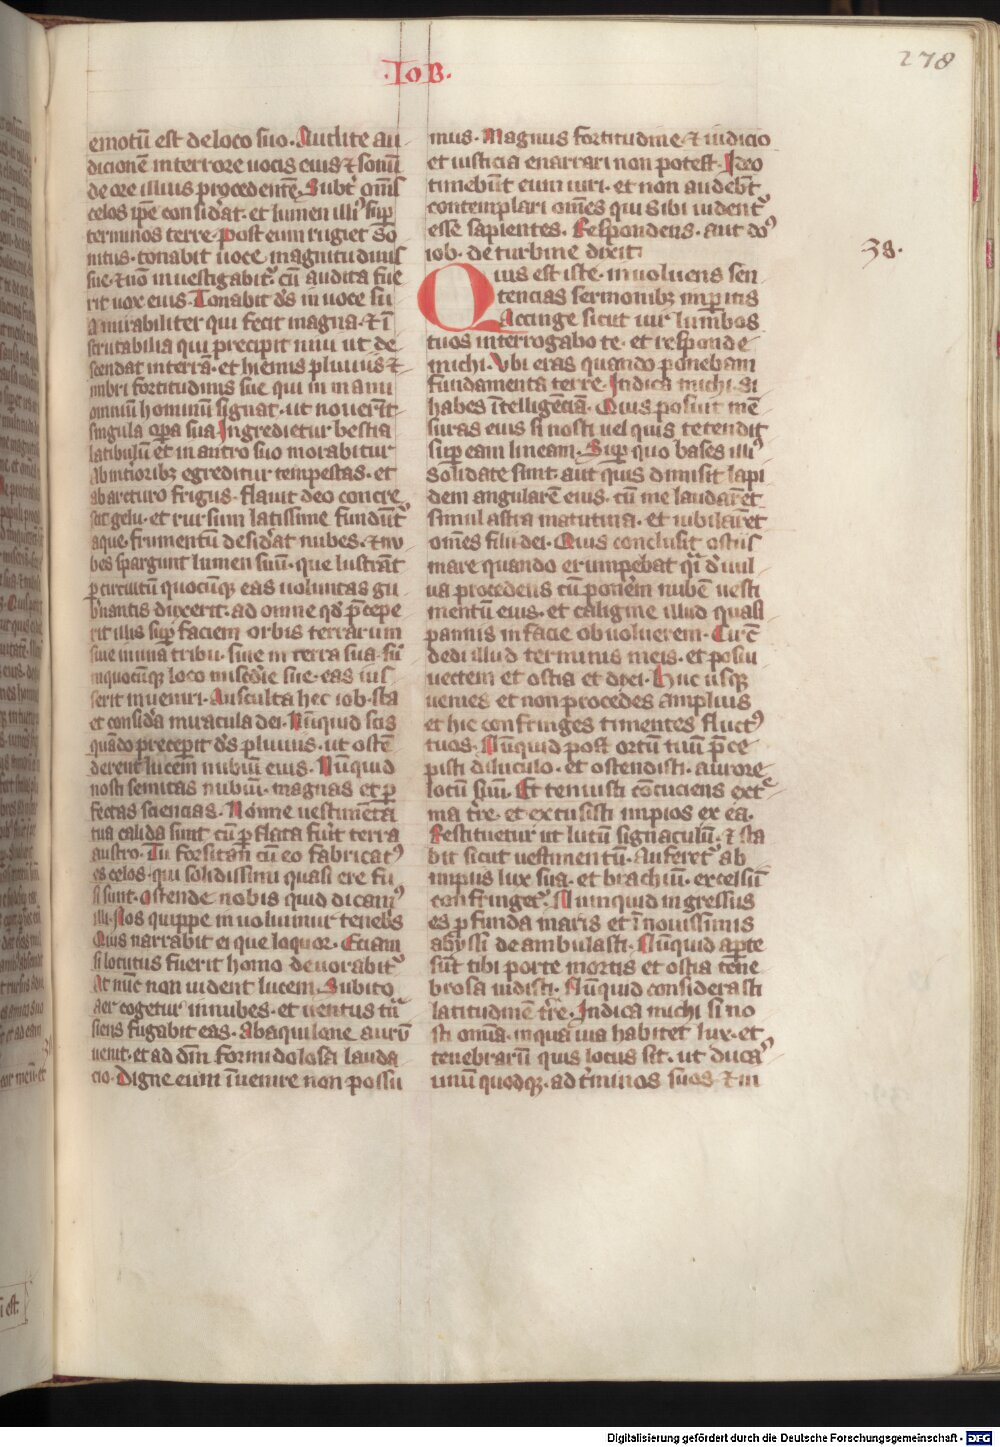 278
·IoB·
emotū est de loco suo. Audite au
dicionē in terrore uocis eius ⁊ sonū
de ore illius procedentē. Subt' om̄s
celos ip̄e considerat. et lumen illi⁹ sup̄
terminos terre. Post eum rugiet so
nitus. tonabit uoce magnitudinis
sue. ⁊ nō inuestigabit². cū audita fue
rit uox eius. Tonabit d̄s in uoce su
a mirabiliter qui fecit magna. ⁊ ī
scrutabilia qui precipit niui ut de
scendat in terrā. et hiemis pluuiis ⁊
imbri fortitudinis sue qui in manu
omniū hominū signat. ut nouerīt
singula op̄a sua. Ingredietur bestia
latibulū et in antro suo morabitur
Ab intͥoribꝫ egreditur tempestas. et
ab arcturo frigus. flante deo concre
scit gelu. et rursum latissime fundūt²
aque. frumentū desid'at nubes. ⁊ nu
bes spargunt lumen suū. que lustrāt
ꝑ circuitū quocūqꝫ eas uoluntas gu
b'nantis duxerit. ad omne qd̄ p̄cepe
rit illis sup̄ faciem orbis terrarum
siue in una tribu. siue in terra sua. siū
inquocūqꝫ loco misc̄die sue. eas ius
serit inueniri. Ausculta hec iob. sta
et consid'a miracula dei. Nūquid scis
quādo preceperit d̄s pluuiis. ut ostē
derent lucem nubiū eius. Nūquid
nosti semitas nubiū. magnas et ꝑ
fectas sciencias. Nonne uestimēta
tua calida sunt cū ꝑflata fūit terra
austro. Tu forsitan cū eo fabricat⁹
es celos. qui solidissimi quasi ere fu
si sunt. Ostende nobis quid dicam⁹
illi. Nos quippe inuoluimur teneb̄s
Quis narrabit ei que loquor. Etiam
si locutus fuerit homo deuorabit²
At nūc non uident lucem. Subito
aer cogetur in nubes. et uentus tn̄
siens fugabit eas. Ab aquilone aurū
uenit. et ad dm̄ formidolosa lauda
cio. Digne eum īuenire non possu
mus. Magnus fortitudine. ⁊ iudicio
et iusticia enarrari non potest. Ideo
timebūt eum uiri. et non audebūt
contemplari om̄es qui sibi uident²
esse sapientes. Respondens. aut dō⁹
iob. de turbine dixit.
38.
Quis est iste. inuoluens sen
tencias sermonibꝫ imꝑitis
Accinge sicut uir lumbos
tuos interrogabo te. et responde
michi. Vbi eras quando ponebam
fundamenta terre. Indica michi. si
habes ītelligēciā. Quis posuit mē
suras eius si nosti uel quis tetendit
sup̄ eam lineam. Sup̄ quo bases illi⁹
solidate sunt. aut quis dimisit lapi
dem angularē eius. cū me laudarēt
simul astra matutina. et iubilarēt
om̄es filii dei. Quis conclusit ostiis
mare quando erumpebat qͥ d'uul
ua procedens cū ponerē nubē uesti
mentū eius. et caligine illud quasi
pannis infacie obuoluerem. Circ̄
dedi illud terminis meis. et posui
uectem et ostia et dixi. Huc usqꝫ
uenies et non procedes amplius
et hic confringes timentes fluct⁹
tuos. Nūquid post ortū tuū p̄ce
pisti diluculo. et ostendisti. aurore
locū suū. Et tenuisti cōcuciens ext²
ma tr̄e. et excusisti impios ex ea.
Restituetur ut lutū signaculū. ⁊ sta
bit sicut uestimentū. Auferet² ab
impiis lux sua. et brachiū. excelsū
confringet². Nunquid ingressus
es ꝓfunda maris et ī nouissimis
abyssi deambulasti. Nūquid aꝑte
sūt tibi porte mortis et ostia tene
brosa uidisti. Nūquid considerasti
latitudinē tr̄e. Indica michi si no
sti omīa. inqua uia habitet lux. et
tenebrarū quis locus sit. ut ducas
unū quodqꝫ. ad t'minos suos ⁊ in
i est.
Digitalisierung gefördert durch die Deutsche Forschungsgemeinschaft - DFG